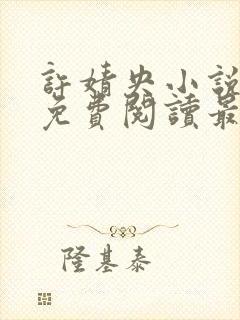 許婧央小說
免費閱讀最
隆基泰